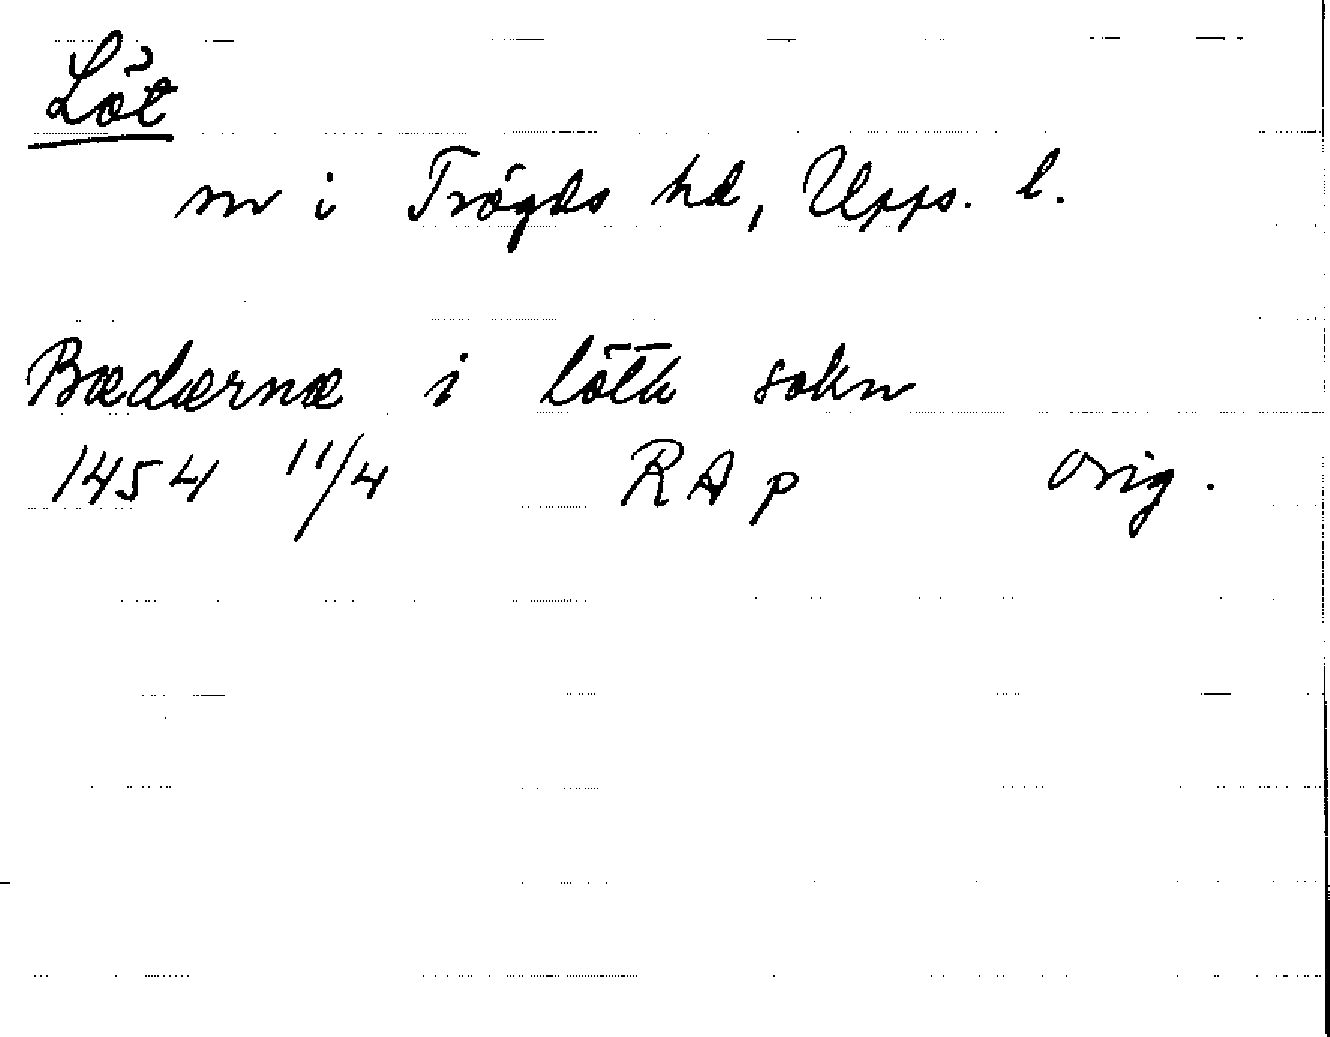 Löt
sn i Trögds hd, Upps. l.
Bædærnæ i löth sokn
1454 11/4 RAp orig.